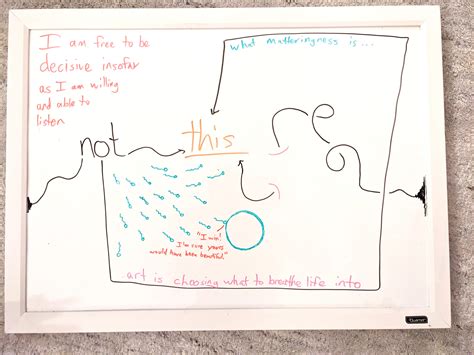 I am free to be
decisive insofar
as I am willing
and able to
listen
what matteringness is...
not
this
"I win!
I'm sure yours
would have been beautiful."
art is choosing what to breathe life into